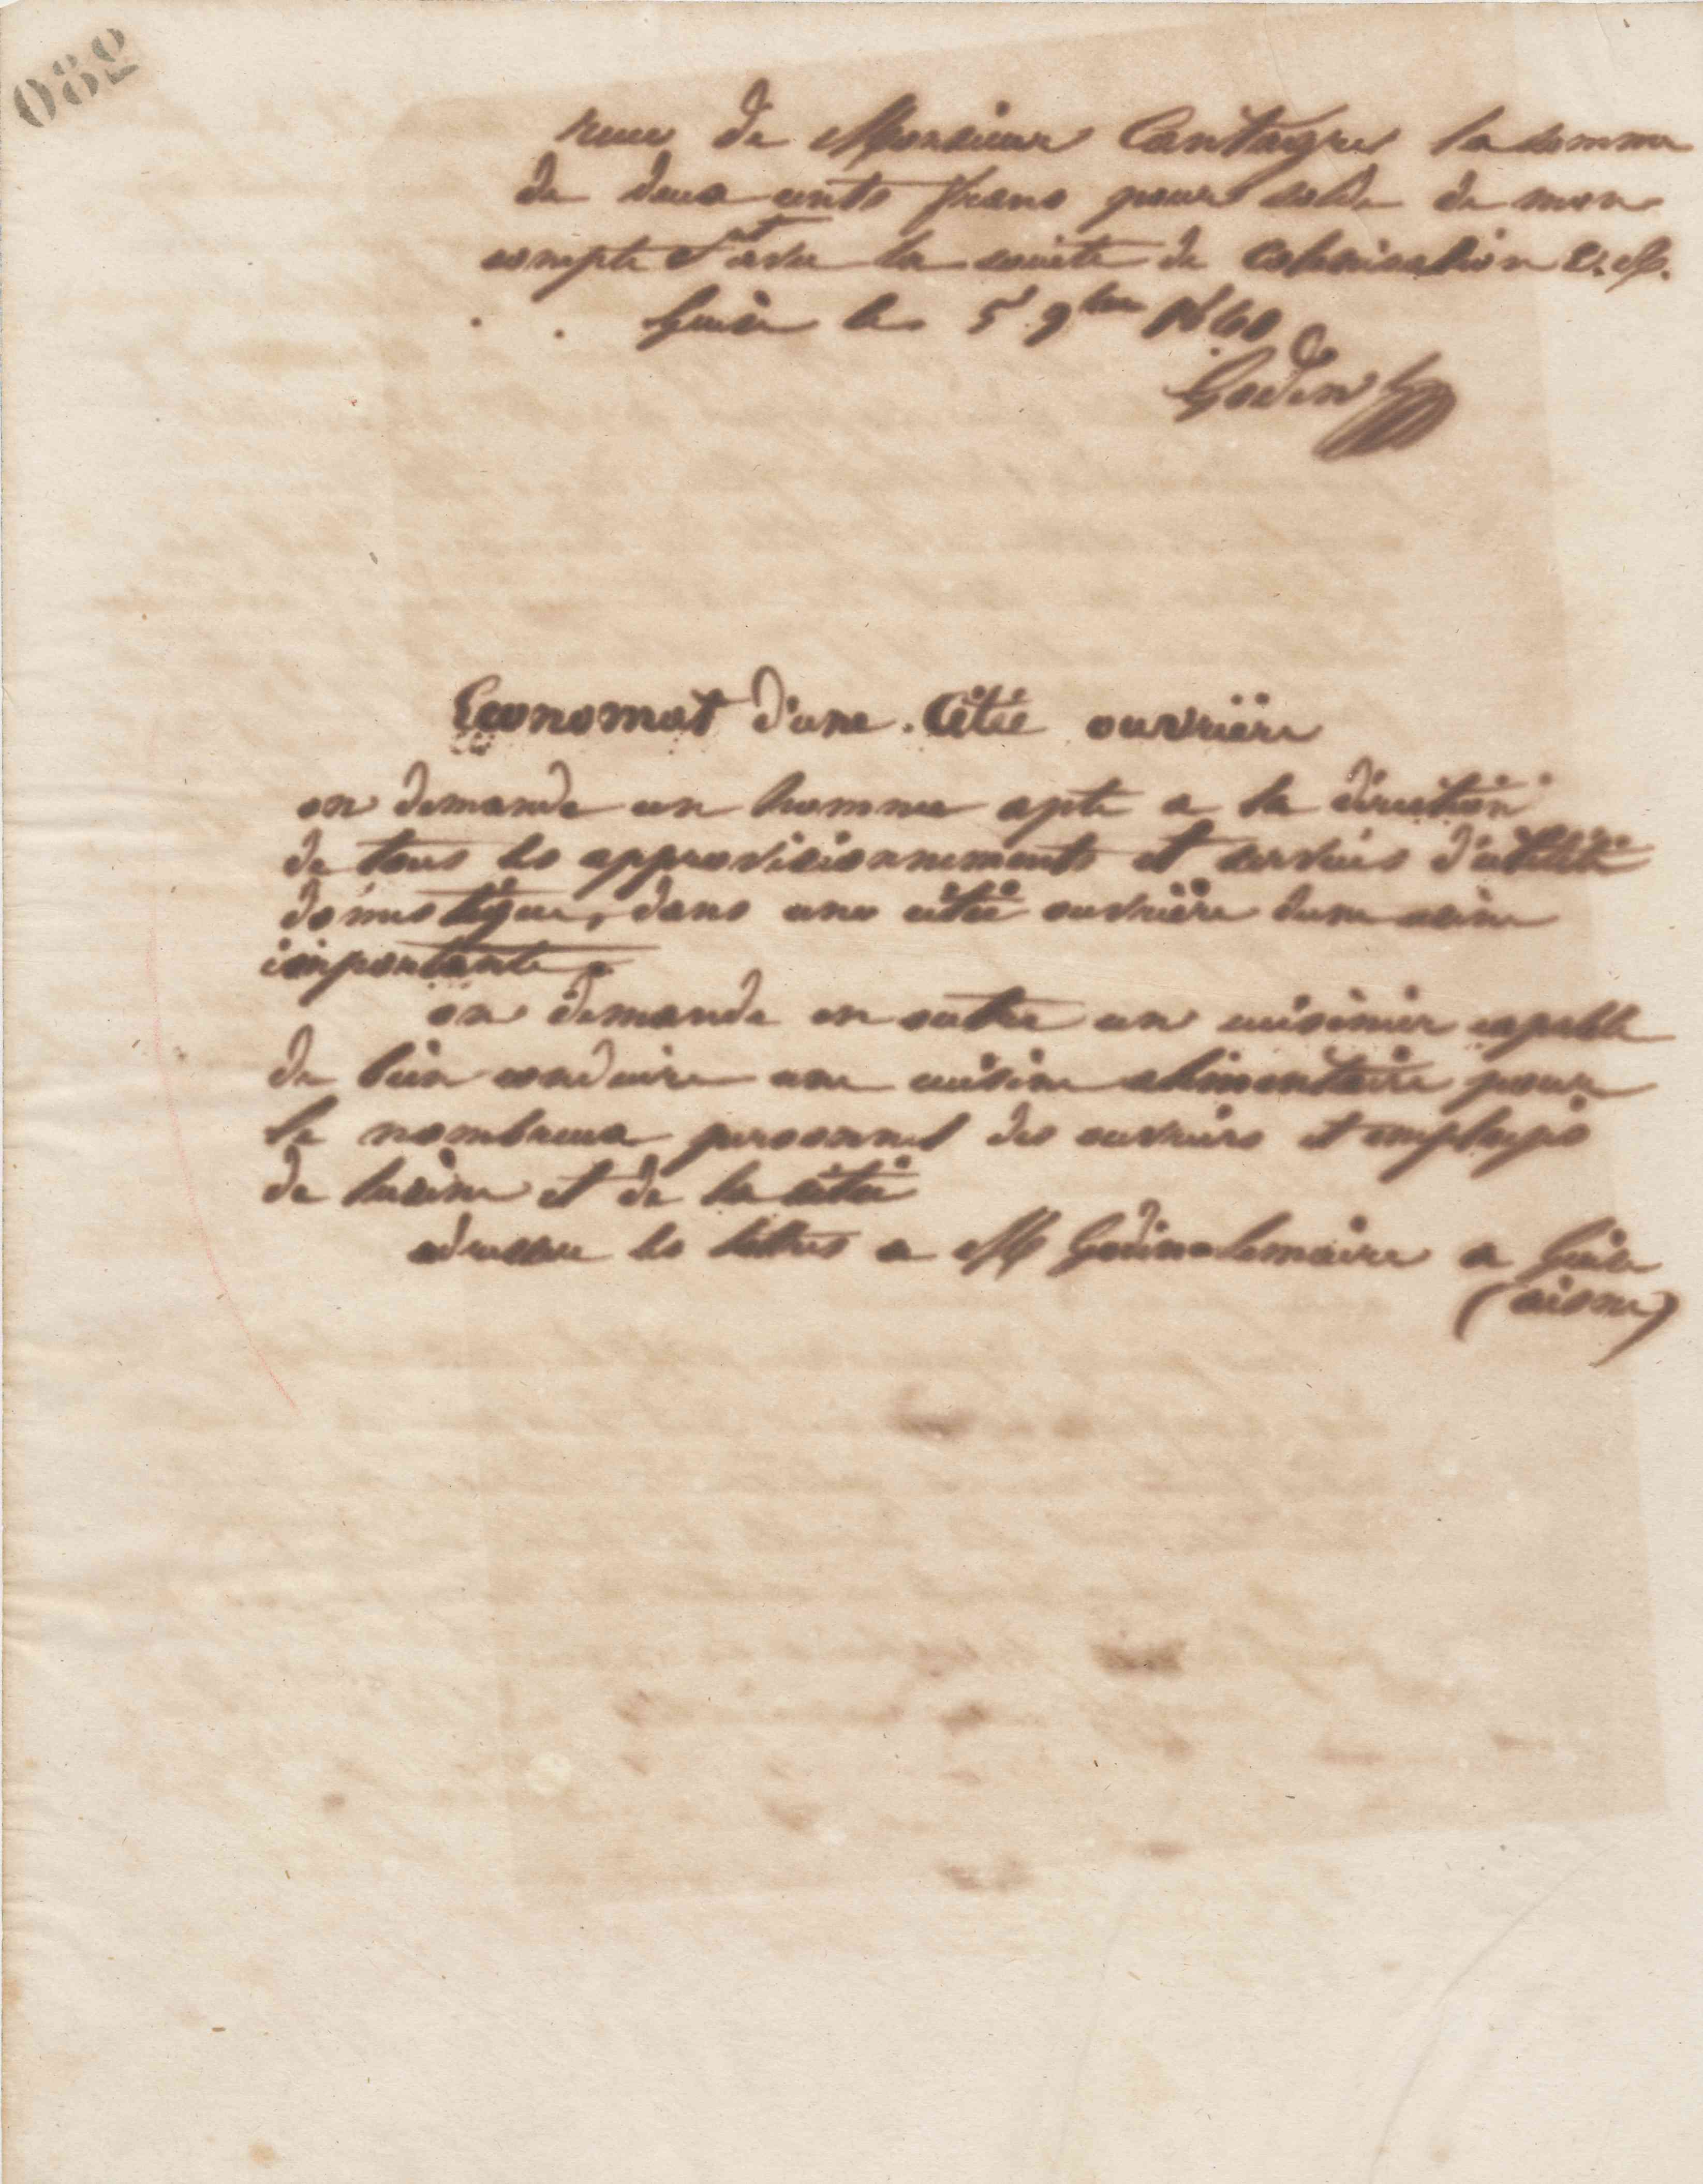 580
recu de Monsieur Cantagrel la somme
de deux cents francs pour solde de mon
compte ct avec la société de colonisation
Guise le 5 9bre 1860
Godin
Economat d'une Citée ouvrière
on demande un homme apte a la direction
de tous les approvisionnements et services d'utilité
domestique, dans une citée ouvrière dune usine
importante.
on demande en outre un cuisinier capable
de bien conduire une cuisine alimentaire pour
le nombreux personnel des ouvriers et employés
de lusine et de la citée
adresser les lettres a M Godin-Lemaire a Guise
(aisne)